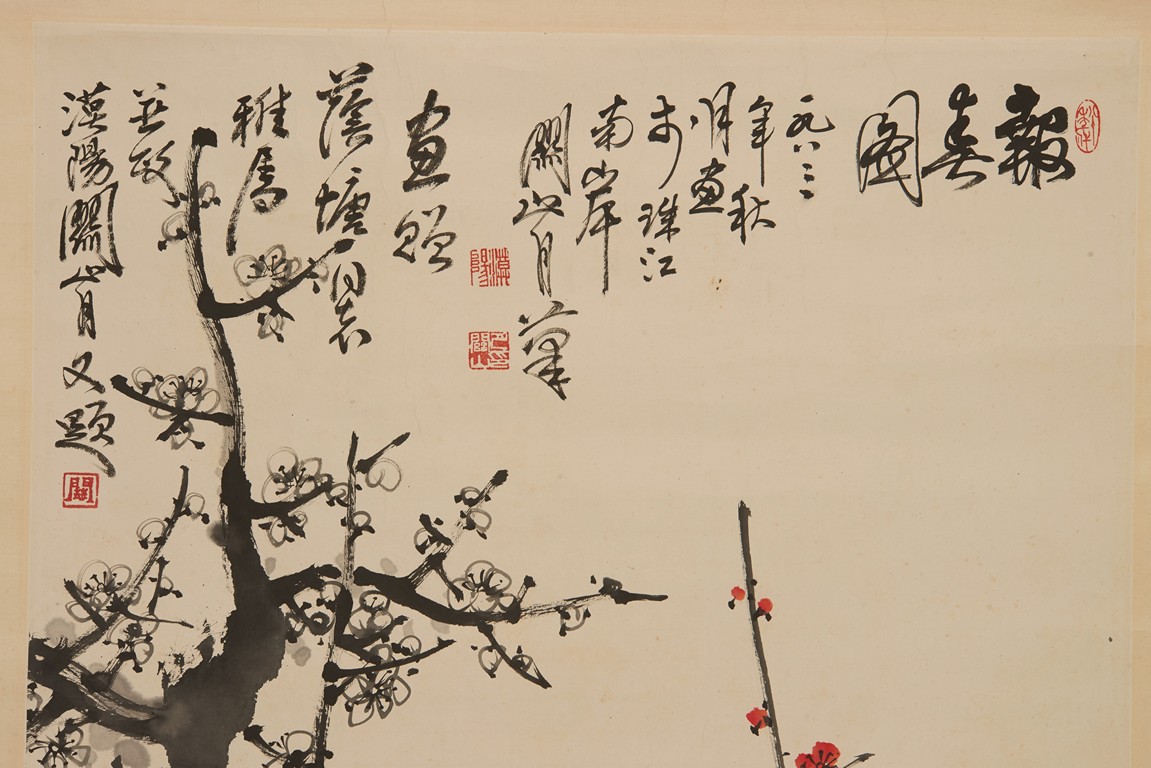 報春圖
一九八三
年秋
月畫
於珠江
南岸
關山月筆
漠陽
畫贈
蔭墉同志
雅屬
並政
漠陽關山月又題
關